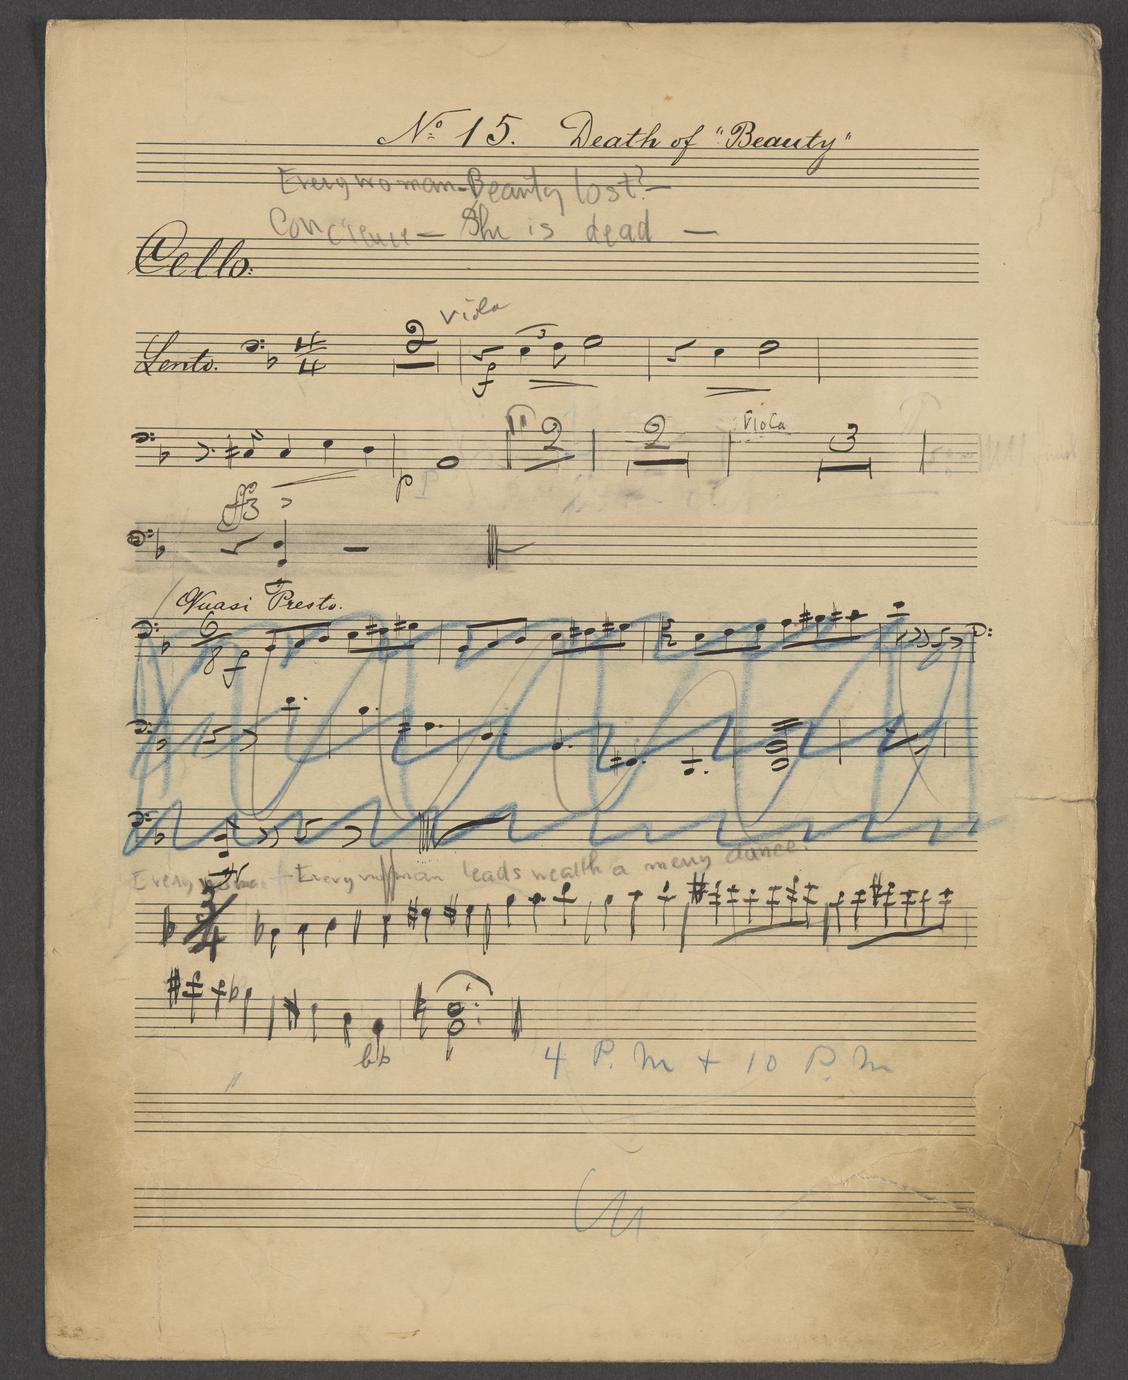 No 15. Death of "Beauty"
Everywoman - Beauty lost? -
Concience - She is dead -
Cello.
viola
Lento. 4/4 2 3
f
Viola
2 2 3
p P
ff3 >
Quasi Presto.
6/8 f
Everywoman leads wealth a merry dance.
3/4
bb
4 P.M + 10 P.M